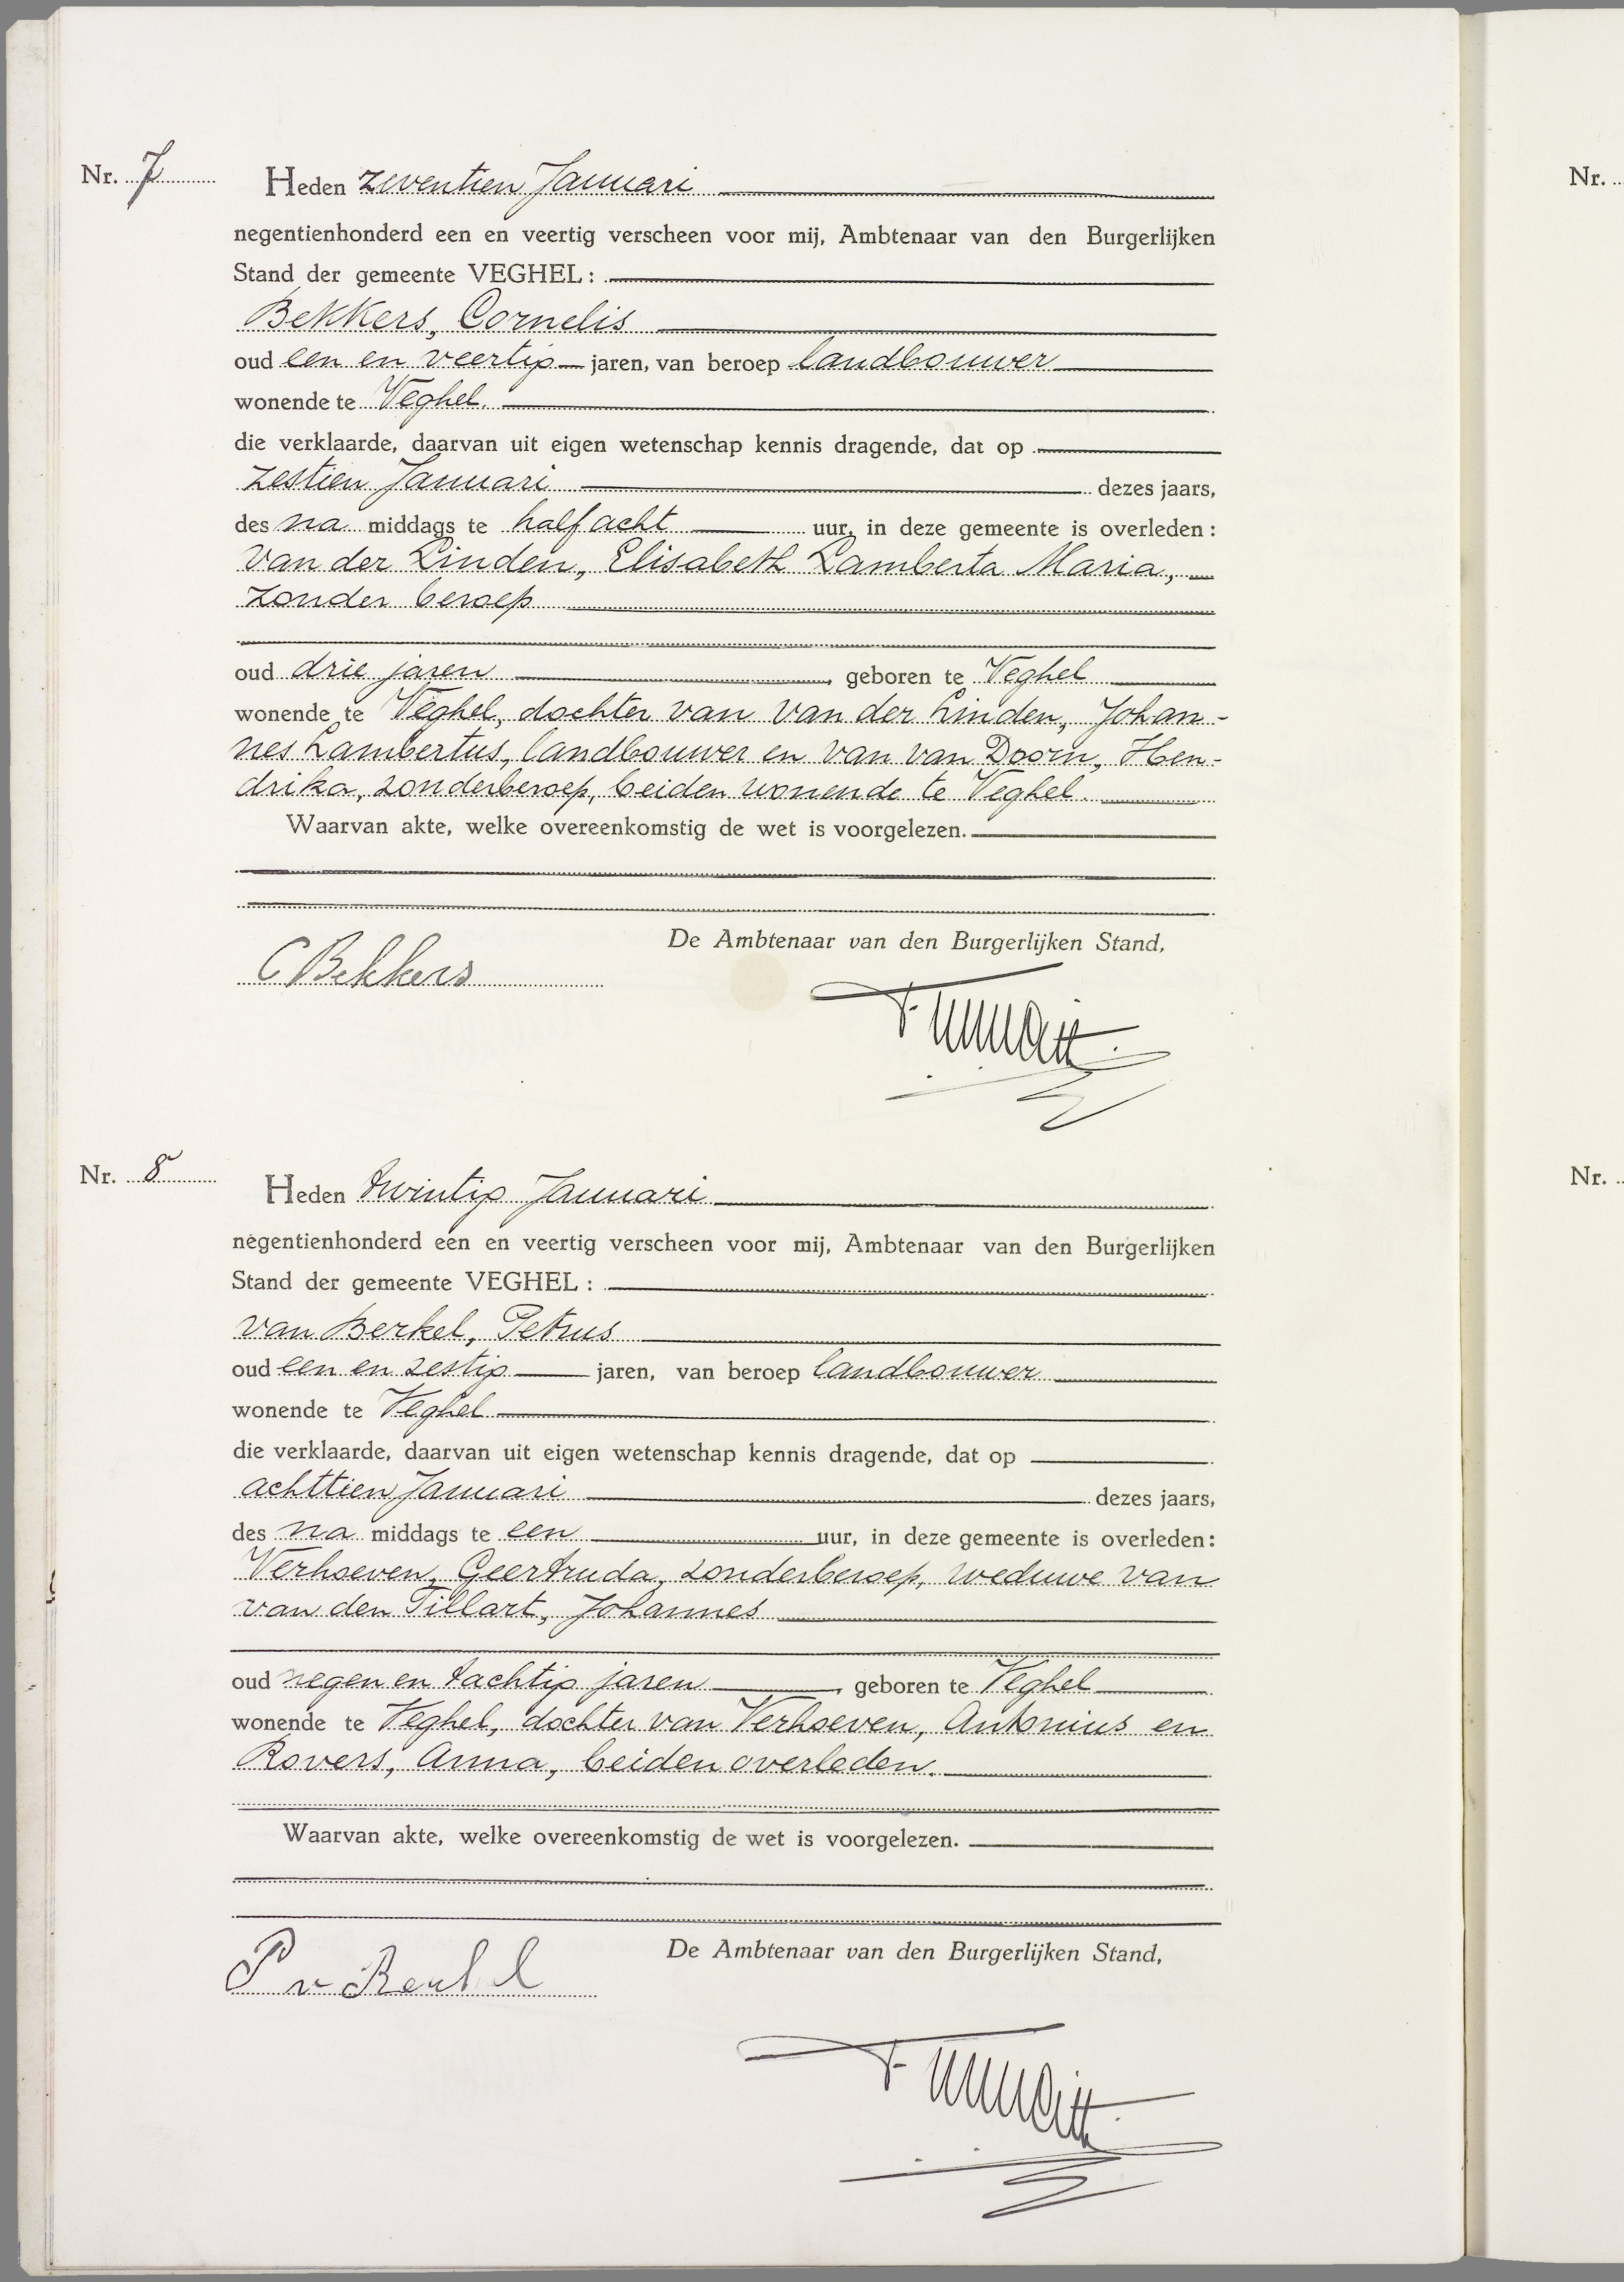 Nr. 7
Heden zeventien Januari
negentienhonderd een en veertig verscheen voor mij, Ambtenaar van den Burgerlijken
Stand der gemeente VEGHEL:
Bekkers, Cornelis
oud een en veertig jaren, van beroep landbouwer
wonende te Veghel.
die verklaarde, daarvan uit eigen wetenschap kennis dragende, dat op
zestien Januari dezes jaars,
des na middags te half acht uur, in deze gemeente is overleden:
van der Linden, Elisabeth Lamberta Maria,
zonder beroep
oud drie jaren, geboren te Veghel
wonende te Veghel, dochter van van der Linden, Johan-
nes Lambertus, landbouwer en van van Doorn, Hen-
drika, zonder beroep, beiden wonende te Veghel.
Waarvan akte, welke overeenkomstig de wet is voorgelezen.
De Ambtenaar van den Burgerlijken Stand,
C Bekkers
Nr. 8
Heden twintig Januari
negentienhonderd een en veertig verscheen voor mij, Ambtenaar van den Burgerlijken
Stand der gemeente VEGHEL:
van Berkel, Petrus
oud een en zestig jaren, van beroep landbouwer
wonende te Veghel
die verklaarde, daarvan uit eigen wetenschap kennis dragende, dat op
achttien Januari dezes jaars,
des na middags te een uur, in deze gemeente is overleden:
Verhoeven, Geertruda, zonder beroep, weduwe van
van den Tillart, Johannes
oud negen en tachtig jaren, geboren te Veghel
wonende te Veghel, dochter van Verhoeven, Antonius en
Rovers, Anna, beiden overleden.
Waarvan akte, welke overeenkomstig de wet is voorgelezen.
De Ambtenaar van den Burgerlijken Stand,
P v Berkel
Nr.
Nr.